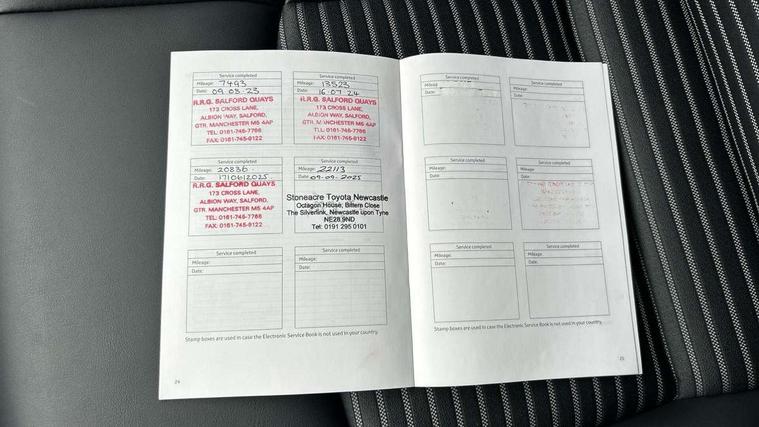 Service completed
Mileage: 7493
Date: 09.03.23
R.R.G. SALFORD QUAYS
173 CROSS LANE,
ALBION WAY, SALFORD,
GTR. MANCHESTER M5 4AP
TEL: 0161-745-7766
FAX: 0161-745-9122
Service completed
Mileage: 13523
Date: 16.07.24
R.R.G. SALFORD QUAYS
173 CROSS LANE,
ALBION WAY, SALFORD,
GTR. MANCHESTER M5 4AP
TEL: 0161-745-7766
FAX: 0161-745-9122
Service completed
Mileage: 20836
Date: 17/06/2025
R.R.G. SALFORD QUAYS
173 CROSS LANE,
ALBION WAY, SALFORD,
GTR. MANCHESTER M5 4AP
TEL: 0161-745-7766
FAX: 0161-745-9122
Service completed
Mileage: 22113
Date: 09-09-2025
Stoneacre Toyota Newcastle
Octagon House, Bittern Close
The Silverlink, Newcastle upon Tyne
NE28 9ND
Tel: 0191 295 0101
Service completed
Mileage:
Date:
Service completed
Mileage:
Date:
Stamp boxes are used in case the Electronic Service Book is not used in your country.
24
Service completed
Mileage
Date:
Service completed
Mileage:
Date:
Service completed
Mileage:
Date:
Service completed
Mileage:
Date:
Service completed
Mileage:
Date:
Service completed
Mileage:
Date:
Stamp boxes are used in case the Electronic Service Book is not used in your country.
25